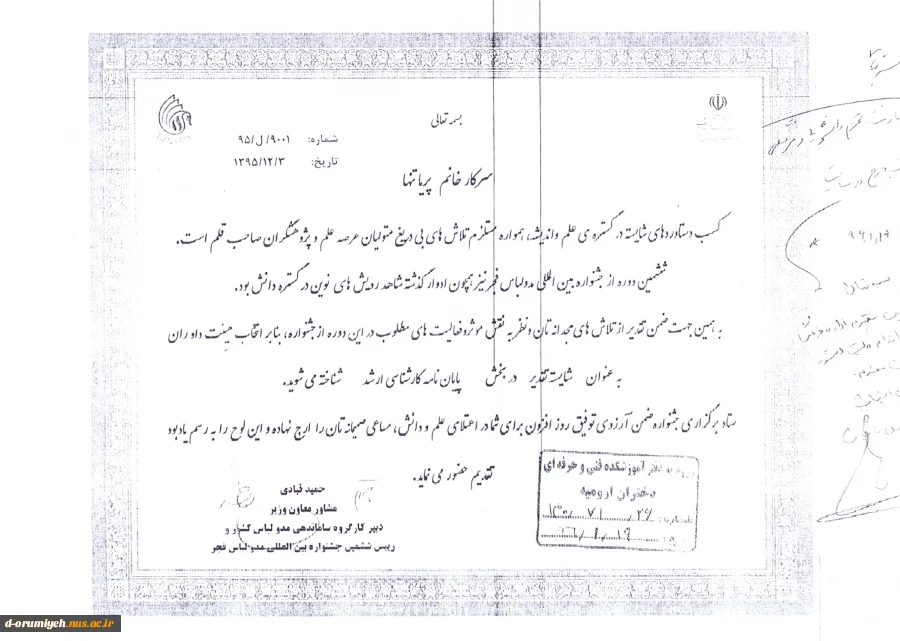 بسمه تعالی
شماره: ۹۰۰۱/ل/۹۵
تاریخ: ۱۳۹۵/۱۲/۳
سرکار خانم پریا تنها
کسب دستاوردهای شایسته در گستره ی علم واندیشه، همواره مستلزم تلاش های بی دریغ متولیان عرصه علم و پژوهشگران صاحب قلم است.
ششمین دوره از جشنواره بین المللی مدولباس فجر نیز همچون ادوار گذشته شاهد رویش های نوین در گستره دانش بود.
به همین جهت ضمن تقدیر از تلاش های مجدانه تان و نظر به نقش موثر و فعالیت های مطلوب در این دوره از جشنواره، بنابر انتخاب هیئت داوران
به عنوان شایسته تقدیر در بخش پایان نامه کارشناسی ارشد شناخته می شوید.
ستاد برگزاری جشنواره ضمن آرزوی توفیق روز افزون برای شما در اعتلای علم و دانش، مساعی صمیمانه تان را ارج نهاده و این لوح را به رسم یادبود
تقدیم حضور می نماید.
حمید قبادی
مشاور معاون وزیر
دبیر کارگروه ساماندهی مدو لباس کشور و
رییس ششمین جشنواره بین المللی مدو لباس فجر
دفتر آموزشکده فنی و حرفه ای
دختران ارومیه
۹۶/۱/۱۹
d-orumiyeh.nus.ac.ir